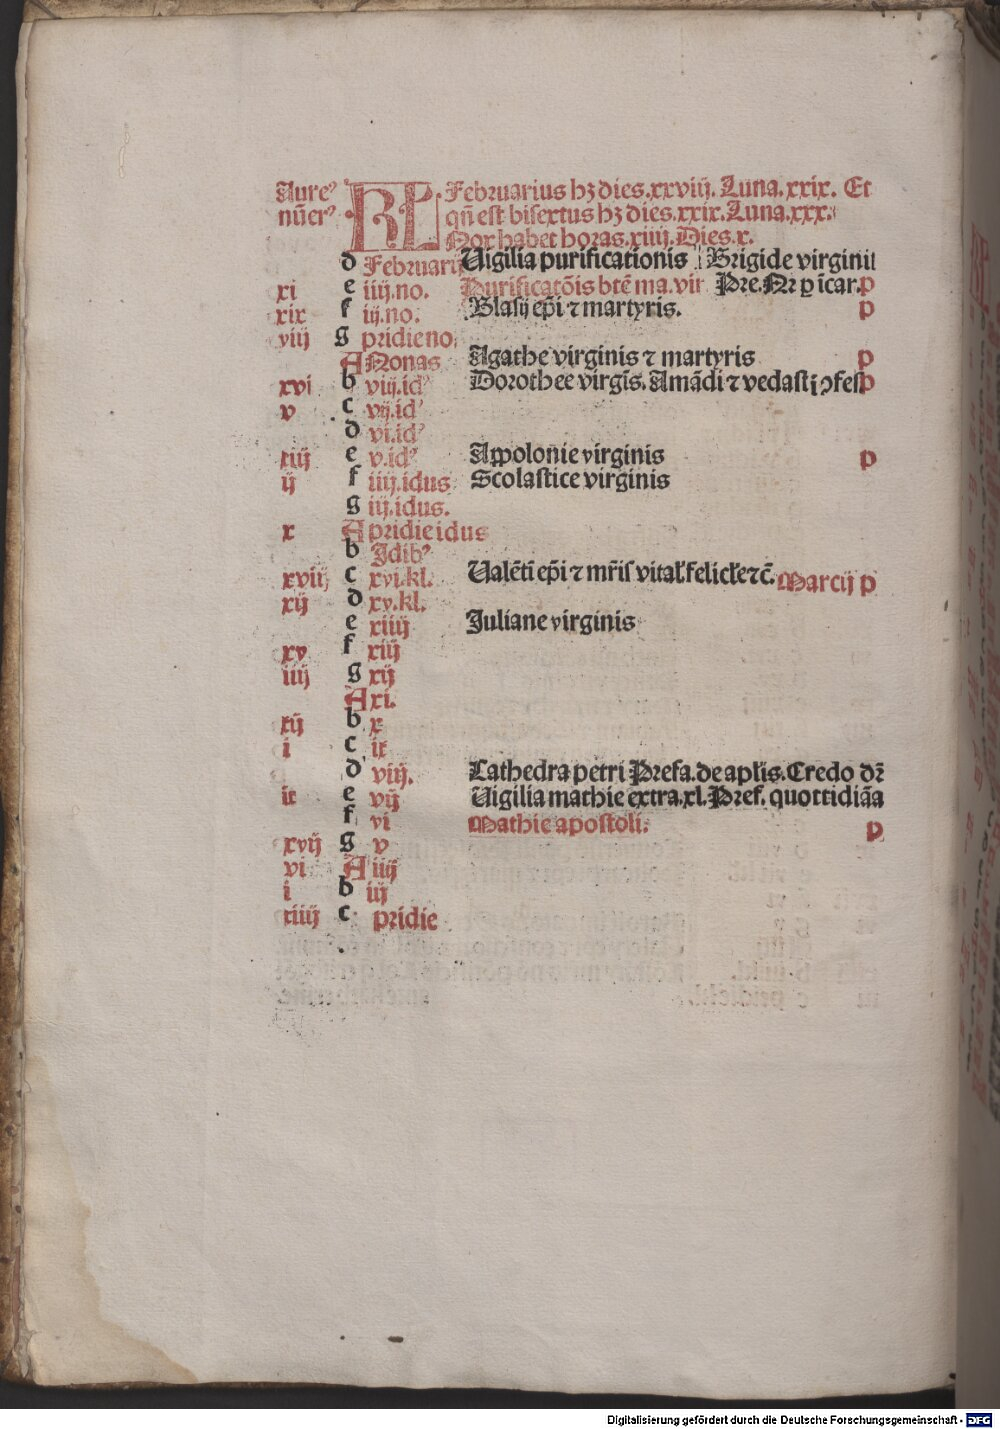 Aureꝰ KL Februarius hꝫ dies.xxviij. Luna.xxix. Et
nũerꝰ qñ est bisextus hꝫ dies.xxix.Luna.xxx.
Nox habet horas.xiiij.Dies.x.
d Februarij Uigilia purificationis Brigide virginis
xi e iiij.no. Purificatõis btẽ ma.vir Pre.Nr̃ p ĩcar.p
xix f iij.no. Blasij ep̃i ⁊ martyris. p
viij g pridie no.
A Nonas Agathe virginis ⁊ martyris p
xvi b viij.idꝰ Dorothee virgĩs. Amãdi ⁊ vedasti ↄfess p
v c vij.idꝰ
d vi.idꝰ
xiij e v.idꝰ Appolonie virginis p
ij f iiij.idus Scolastice virginis
g iij.idus.
x A pridie idus
b Idibꝰ
xviij c xvi.kl. Ualẽti ep̃i ⁊ mr̃is vital.felicł ⁊c̃. Marcij p
xij d xv.kl.
e xiiij Juliane virginis
xv f xiij
iiij g xij
A xi.
xij b x
i c ix
d viij. Cathedra petri Prefa.de apl̃is.Credo dr̃
ix e vij Uigilia mathie extra.xl.Pref.quottidiãa
f vi Mathie apostoli. p
xvij g v
vi A iiij
i b iij
xiiij c pridie
Digitalisierung gefördert durch die Deutsche Forschungsgemeinschaft - DFG